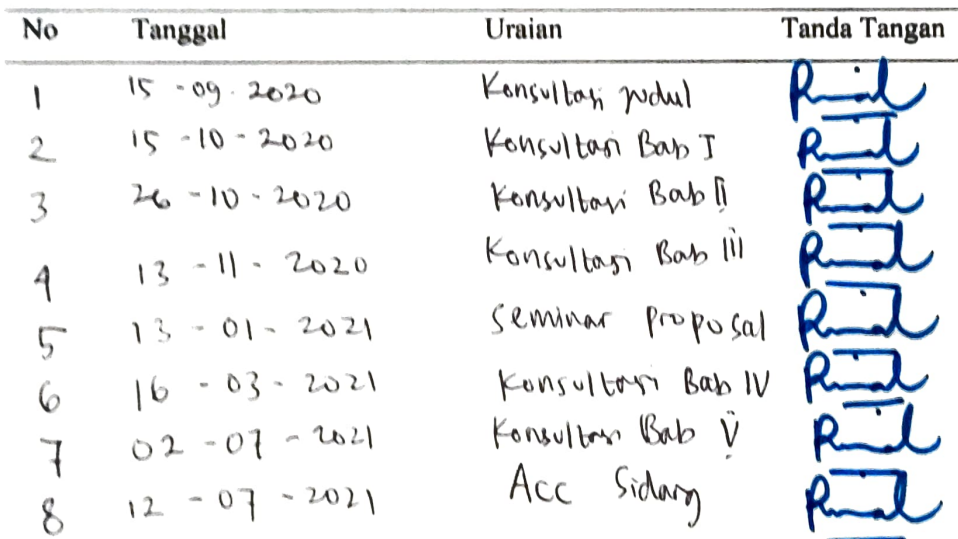 No Tanggal Uraian Tanda Tangan
1 15 - 09 - 2020 Konsultasi judul
2 15 - 10 - 2020 Konsultasi Bab I
3 26 - 10 - 2020 Konsultasi Bab II
4 13 - 11 - 2020 Konsultasi Bab III
5 13 - 01 - 2021 Seminar proposal
6 16 - 03 - 2021 Konsultasi Bab IV
7 02 - 07 - 2021 Konsultasi Bab V
8 12 - 07 - 2021 Acc Sidang